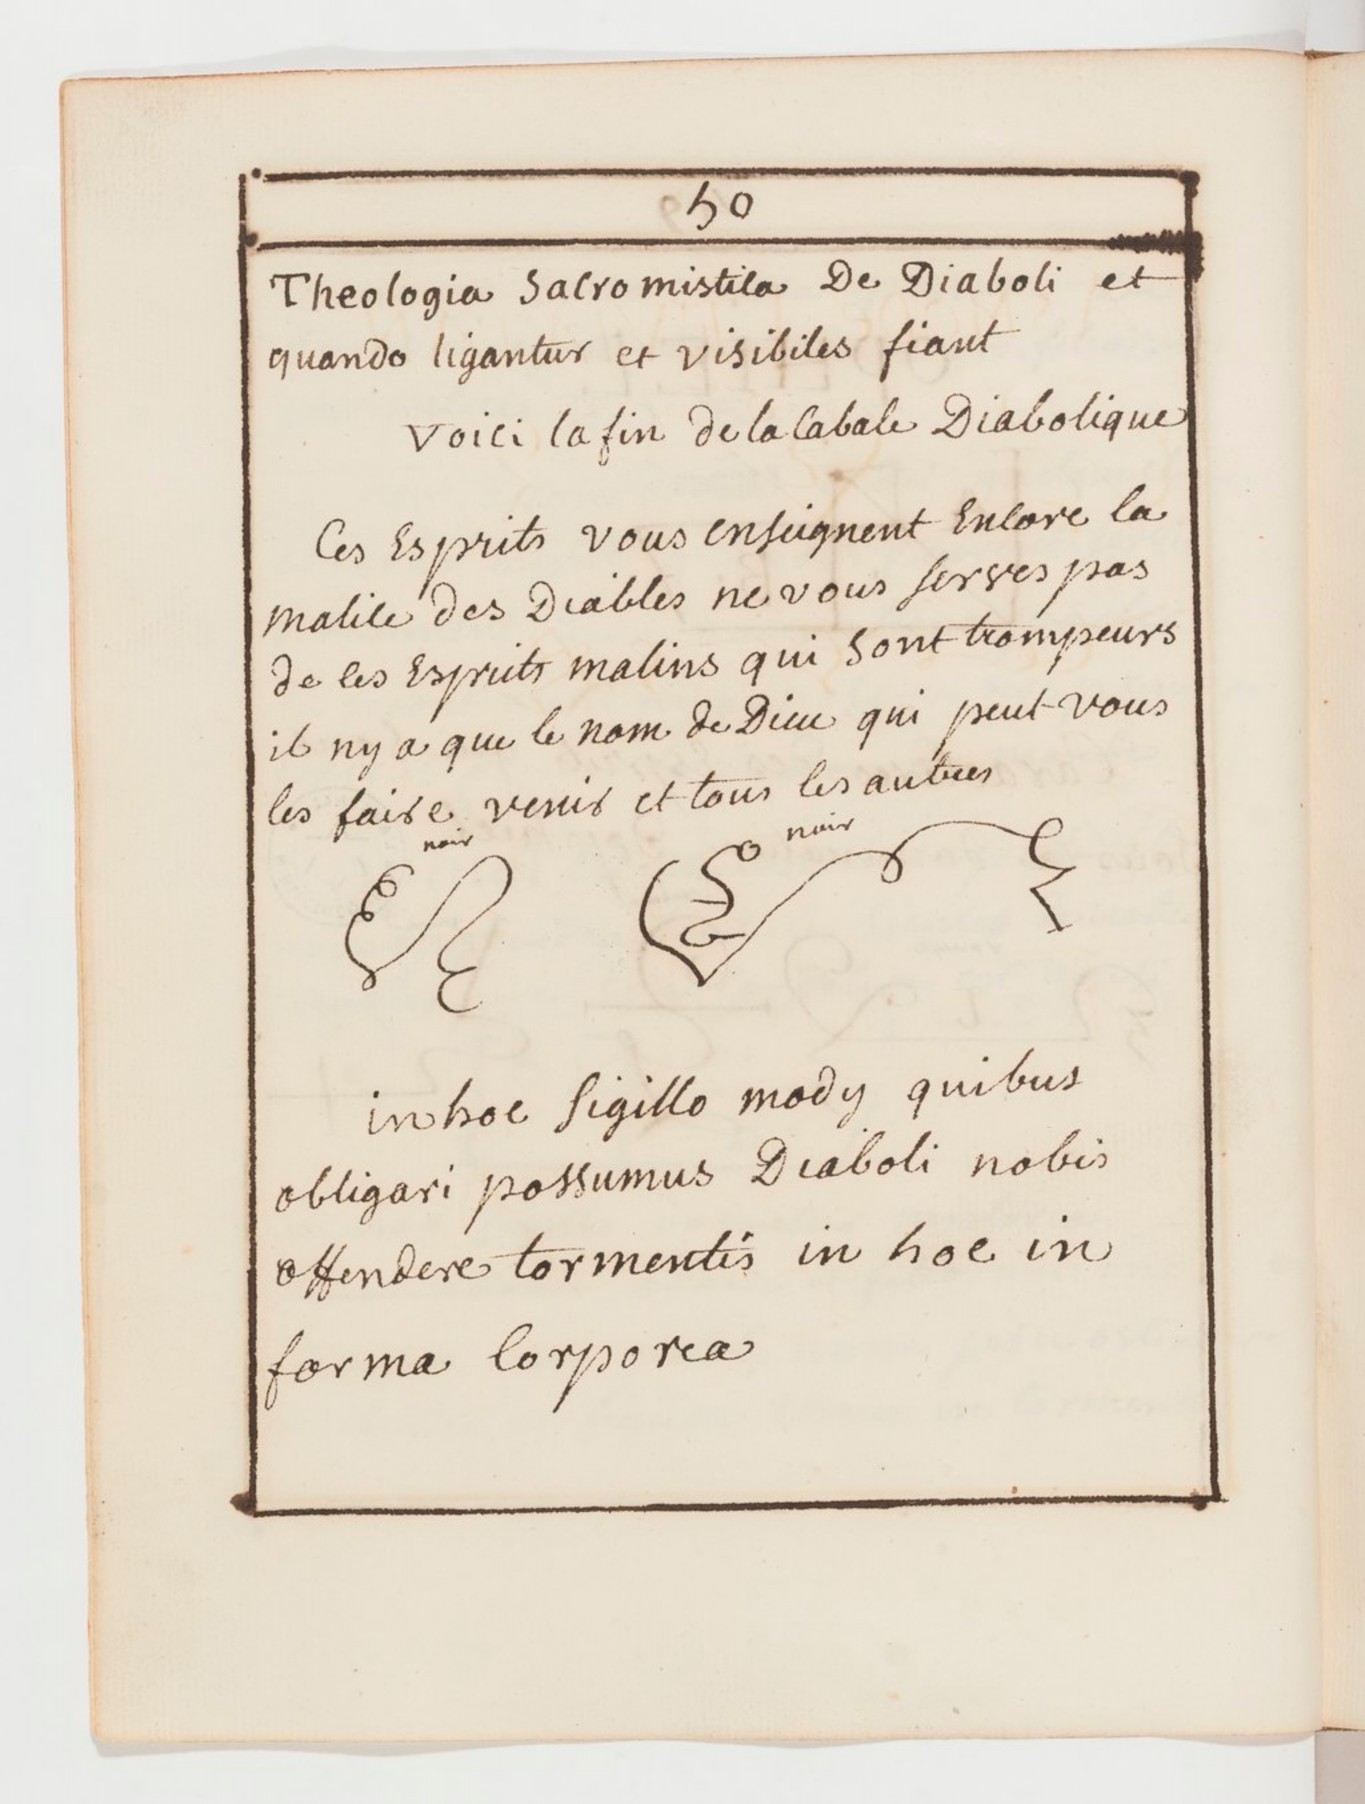 50
Theologia Sacro mistica De Diaboli et
quando ligantur et visibiles fiant
voici la fin de la Cabale Diabolique
Ces Esprits vous enseignent Encore la
malice des Diables ne vous serves pas
de ces Esprits malins qui sont trompeurs
il ny a que le nom de Dieu qui peut vous
les faire venir et tous les autres
noir noir
in hoc sigillo mody quibus
obligari possumus Diaboli nobis
offendere tormentis in hoc in
forma Corporea